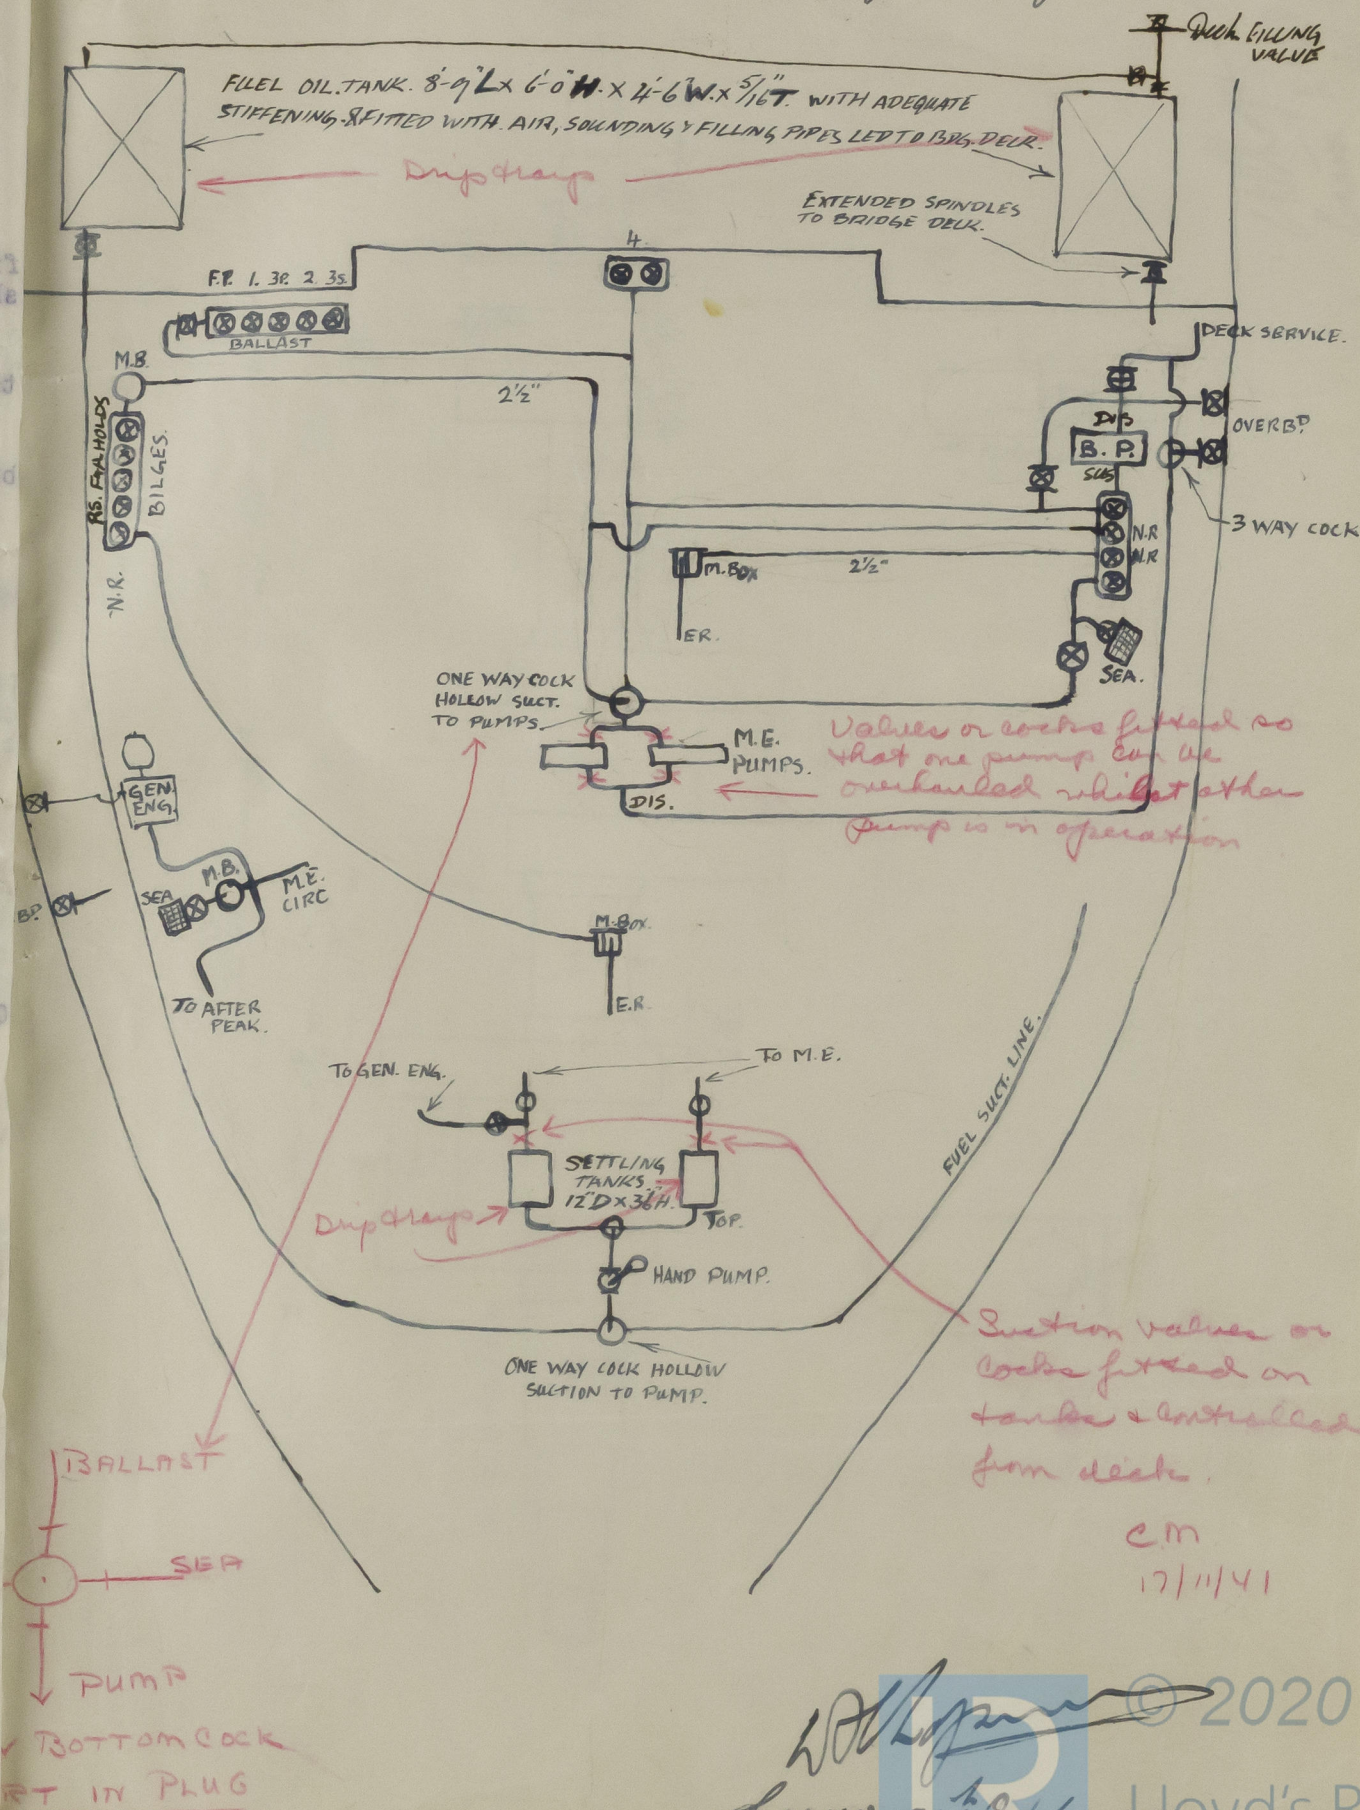 Deck FILLING
VALVE
FUEL OIL. TANK. 8'-9"L x 6'-0"H. x 4'-6"W. x 5/16"T. WITH ADEQUATE
STIFFENING. & FITTED WITH. AIR, SOUNDING & FILLING PIPES LED TO BDG. DECK.
Drip trays
EXTENDED SPINDLES
TO BRIDGE DECK.
4.
F.P. 1. 3P. 2. 3S.
BALLAST
DECK SERVICE.
M.B.
2½"
DIS
OVERBD.
B. P.
SUS
HOLDS
BILGES.
3 WAY COCK
N.R
N.R
M. BOX
2½"
N.R.
ER.
SEA.
ONE WAY COCK
HOLLOW SUCT.
TO PUMPS.
M.E.
PUMPS.
Valves or cocks fitted so
that one pump can be
overhauled whilst other
pump is in operation
DIS.
GEN.
ENG.
M.B.
SEA
M.E.
CIRC
BD.
M. BOX.
E.R.
TO AFTER
PEAK.
TO GEN. ENG.
TO M.E.
FUEL SUCT. LINE.
SETTLING
TANKS.
12"D x 36"H.
TOP.
Drip trays
HAND PUMP.
ONE WAY COCK HOLLOW
SUCTION TO PUMP.
Suction valves or
cocks fitted on
tanks & controlled
from deck.
C.M
17/11/41
BALLAST
SEA
PUMP
BOTTOM COCK
RT IN PLUG
© 2020
Lloyd's R